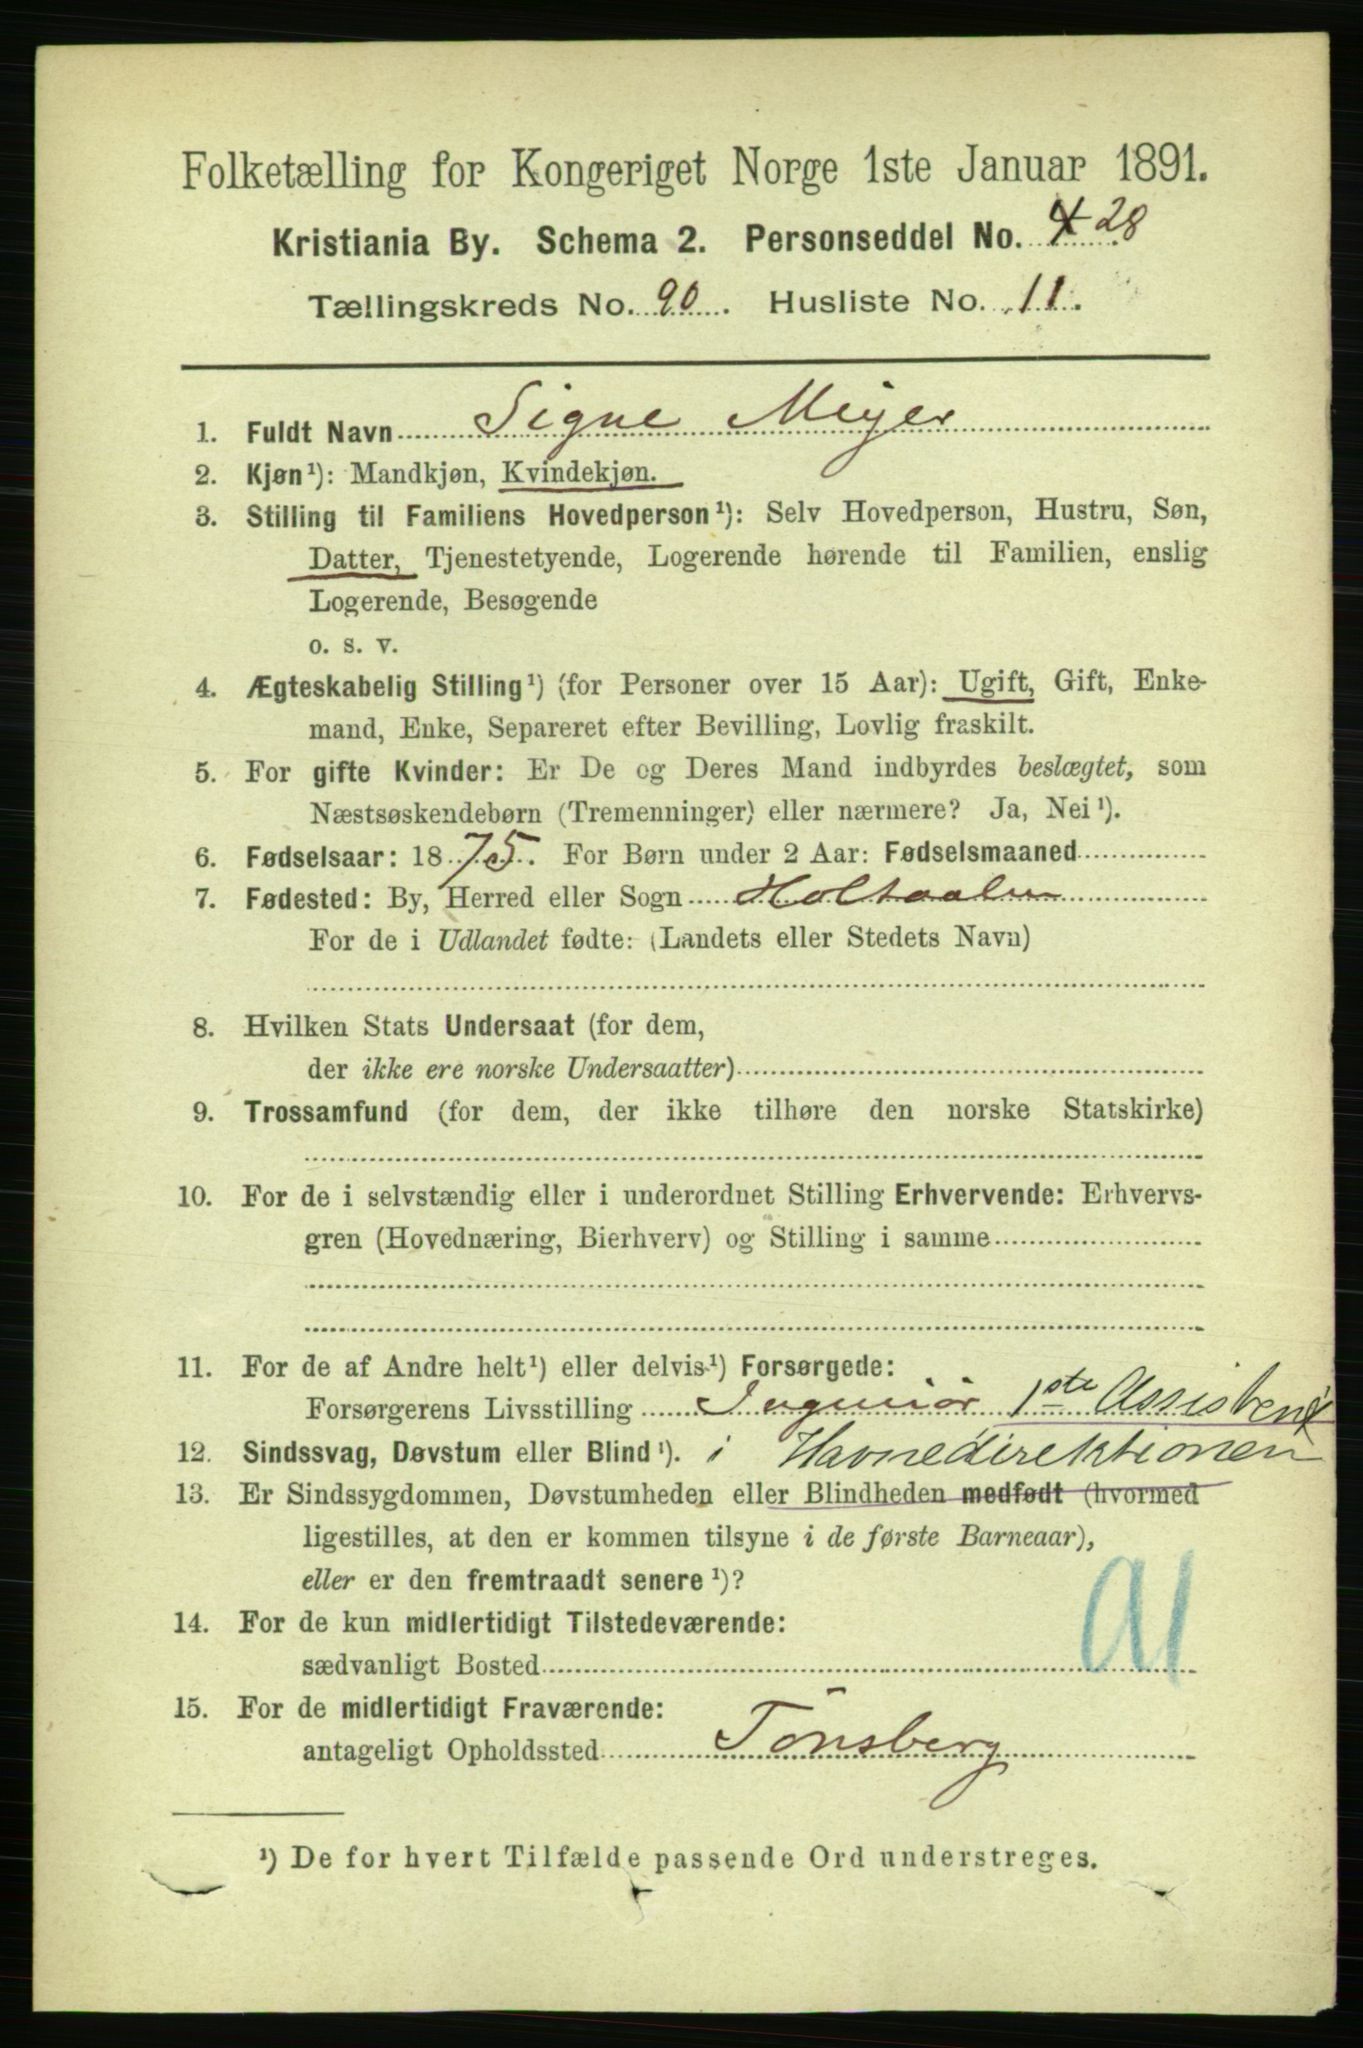 Folketælling for Kongeriget Norge 1ste Januar 1891.
Kristiania By. Schema 2. Personseddel No. 4 28
Tællingskreds No. 90. Husliste No. 11.
1. Fuldt Navn Signe Meyer
2. Kjøn¹): Mandkjøn, Kvindekjøn.
3. Stilling til Familiens Hovedperson¹): Selv Hovedperson, Hustru, Søn,
Datter, Tjenestetyende, Logerende hørende til Familien, enslig
Logerende, Besøgende
o. s. v.
4. Ægteskabelig Stilling¹) (for Personer over 15 Aar): Ugift, Gift, Enke-
mand, Enke, Separeret efter Bevilling, Lovlig fraskilt.
5. For gifte Kvinder: Er De og Deres Mand indbyrdes beslægtet, som
Næstsøskendebørn (Tremenninger) eller nærmere? Ja, Nei¹).
6. Fødselsaar: 1875. For Børn under 2 Aar: Fødselsmaaned
7. Fødested: By, Herred eller Sogn Holtaalen
For de i Udlandet fødte: (Landets eller Stedets Navn)
8. Hvilken Stats Undersaat (for dem,
der ikke ere norske Undersaatter)
9. Trossamfund (for dem, der ikke tilhøre den norske Statskirke)
10. For de i selvstændig eller i underordnet Stilling Erhvervende: Erhvervs-
gren (Hovednæring, Bierhverv) og Stilling i samme
11. For de af Andre helt¹) eller delvis¹) Forsørgede:
Forsørgerens Livsstilling Ingeniör 1ste Assistent
12. Sindssvag, Døvstum eller Blind¹). i Havnedirektionen
13. Er Sindssygdommen, Døvstumheden eller Blindheden medfødt (hvormed
ligestilles, at den er kommen tilsyne i de første Barneaar),
eller er den fremtraadt senere¹)?
14. For de kun midlertidigt Tilstedeværende:
sædvanligt Bosted
15. For de midlertidigt Fraværende:
antageligt Opholdssted Tönsberg
¹) De for hvert Tilfælde passende Ord understreges.